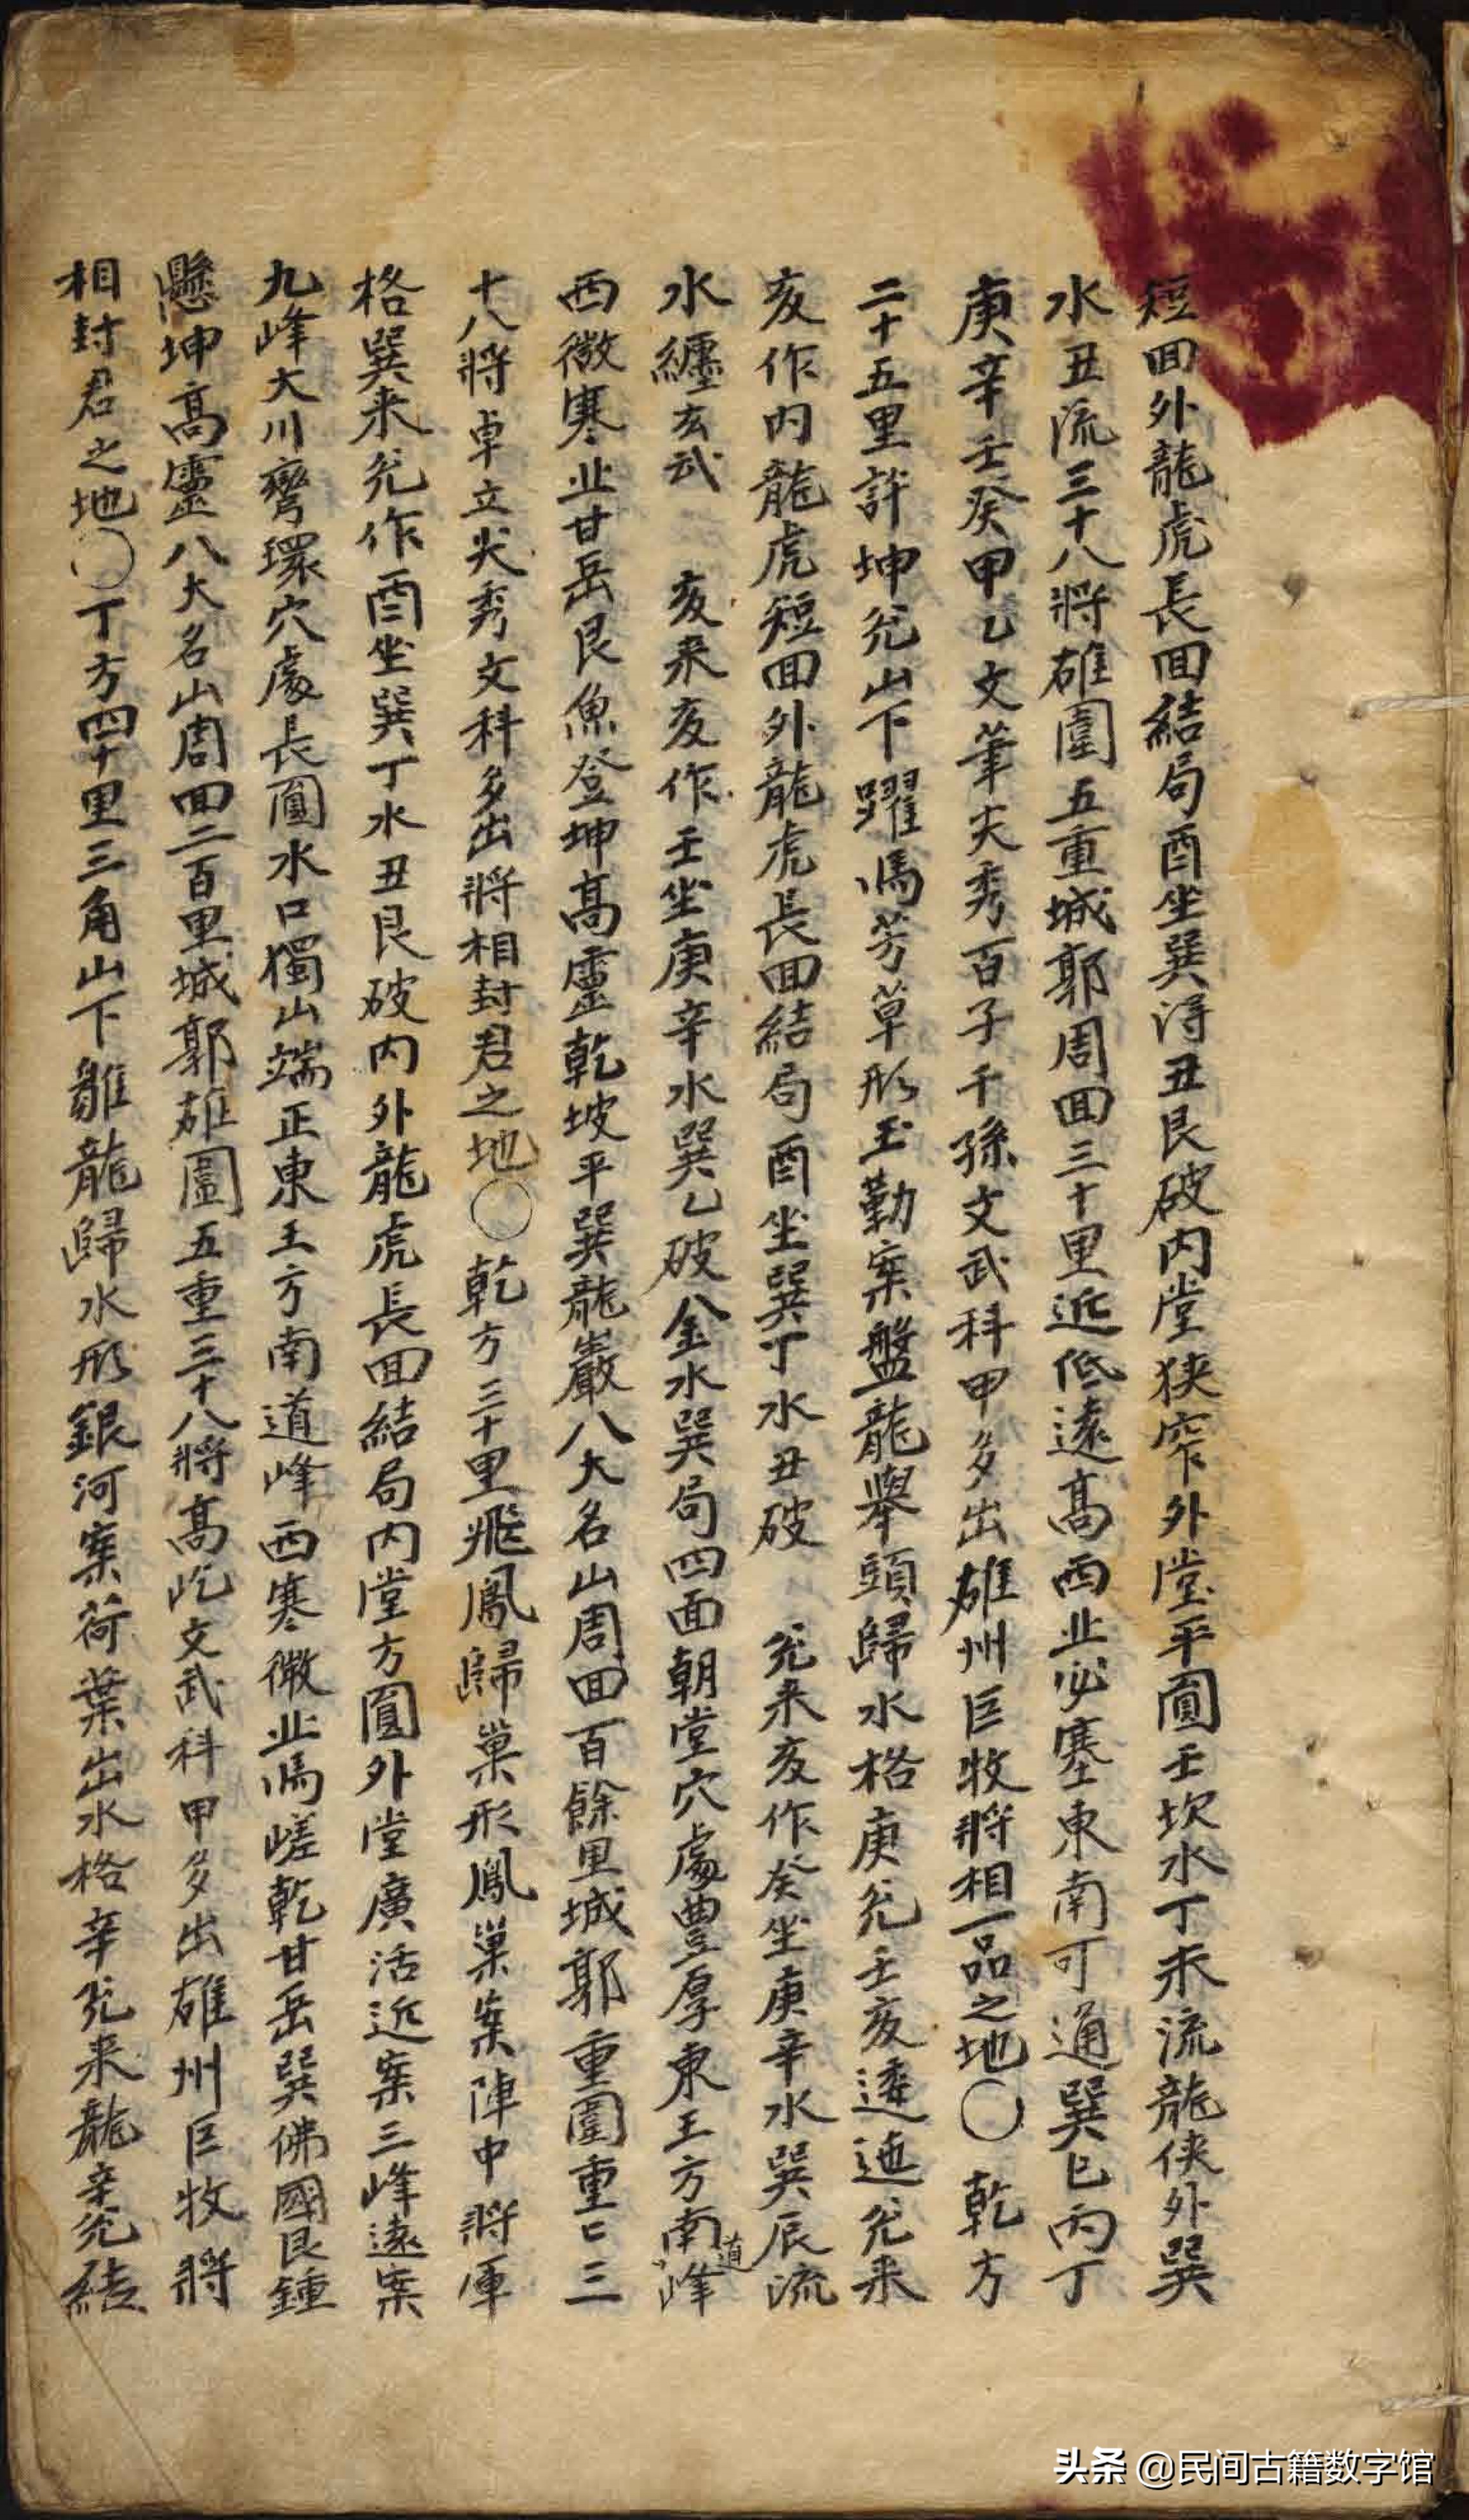 短回外龍虎長回結局酉坐巽淂丑艮破内堂狭窄外堂平圓壬坎水丁未流龍侠外巽
水丑流三十八將雄圍五重城郭周回三十里近低遠髙西北必塞東南可通巽巳丙丁
庚辛壬癸甲乙文筆尖秀百子千孫文武科甲多出雄州巨牧將相一品之地〇乾方
二十五里許坤兊山下躍馬芳草形玉勒案盤龍舉頭歸水格庚兊壬亥逶迤兊来
亥作内龍虎短回外龍虎長回結局酉坐巽丁水丑破 兊来亥作癸坐庚辛水巽辰流
水纏玄武 亥来亥作壬坐庚辛水巽乙破金水巽局四面朝堂穴處豊厚東王方南道峰
西微寒北甘岳艮魚登坤髙靈乾坡平巽龍巖八大名山周回百餘里城郭重圍重〻三
十八將卓立尖秀文科多出將相封君之地〇乾方三十里飛鳳歸巢形鳳巢案陣中將軍
格巽来兊作酉坐巽丁水丑艮破内外龍虎長回結局内堂方圓外堂廣活近案三峰遠案
九峰大川弯環穴處長圓水口獨山端正東王方南道峰西寒微北馬嵯乾甘岳巽佛國艮鍾
懸坤髙靈八大名山周回二百里城郭雄圍五重三十八將髙屹文武科甲多出雄州巨牧將
相封君之地〇丁方四十里三角山下雛龍歸水形銀河案荷葉出水格辛兊来龍辛兊結
头条 @民间古籍数字馆